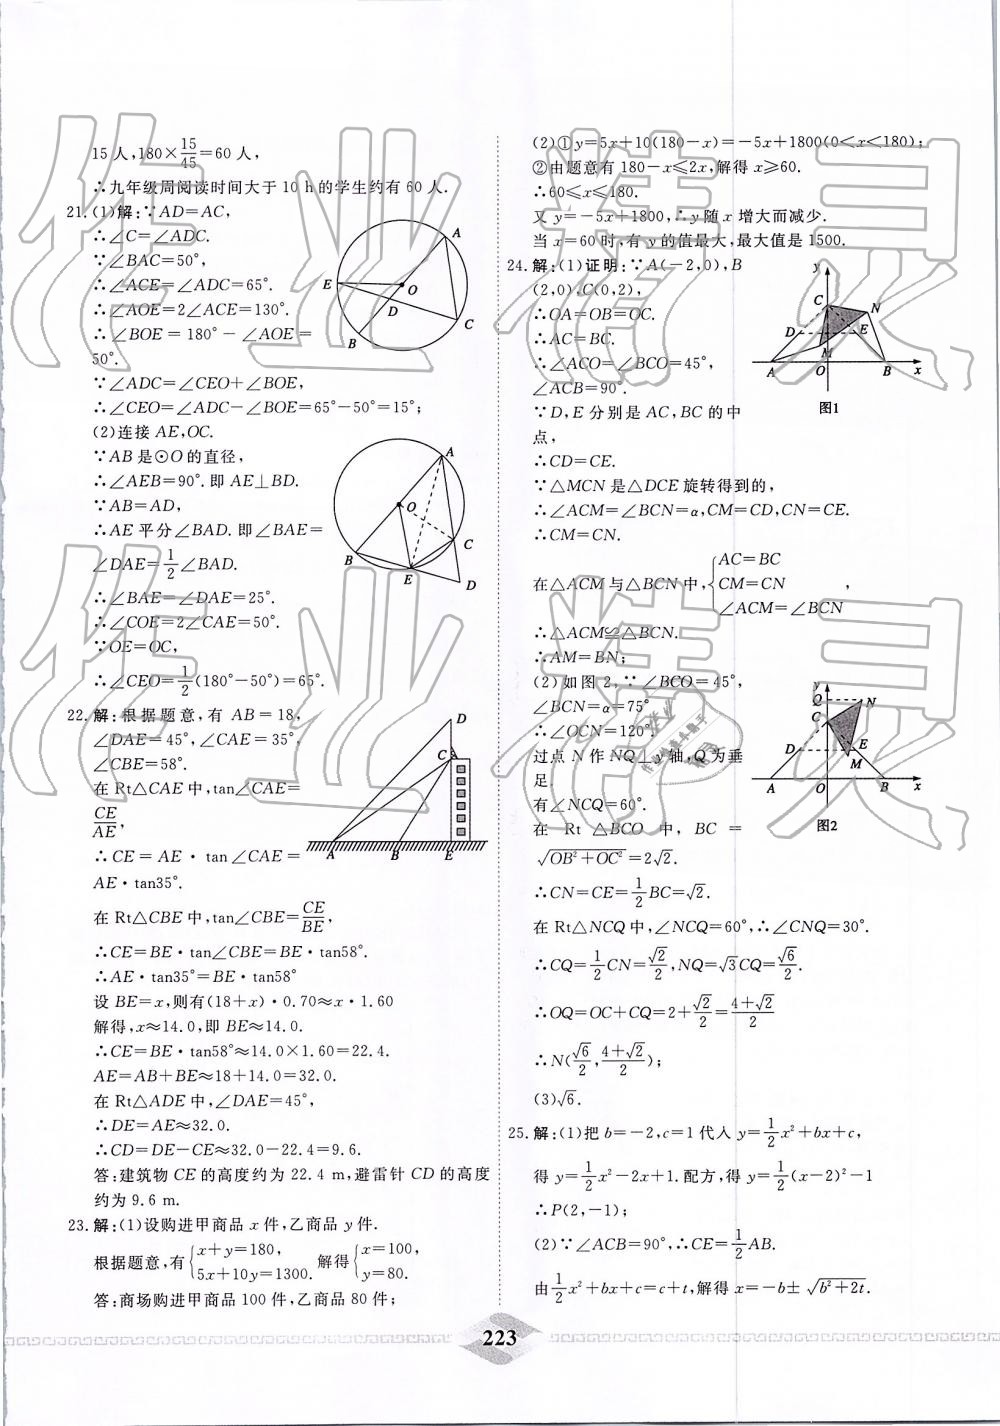 15人,180×15/45=60人,
∴九年级周阅读时间大于10 h的学生约有60人.
21.(1)解:∵AD=AC,
∴∠C=∠ADC.
∵∠BAC=50°,
∴∠ACE=∠ADC=65°.
∴∠AOE=2∠ACE=130°.
∴∠BOE=180°-∠AOE=
50°.
∵∠ADC=∠CEO+∠BOE,
∴∠CEO=∠ADC-∠BOE=65°-50°=15°;
(2)连接AE,OC.
∵AB是⊙O的直径,
∴∠AEB=90°.即AE⊥BD.
∵AB=AD,
∴AE平分∠BAD.即∠BAE=
∠DAE=1/2∠BAD.
∴∠BAE=∠DAE=25°.
∴∠COE=2∠CAE=50°.
∵OE=OC,
∴∠CEO=1/2(180°-50°)=65°.
22.解:根据题意,有AB=18,
∠DAE=45°,∠CAE=35°,
∠CBE=58°.
在Rt△CAE中,tan∠CAE=
CE/AE,
∴CE=AE·tan∠CAE=
AE·tan35°.
在Rt△CBE中,tan∠CBE=CE/BE,
∴CE=BE·tan∠CBE=BE·tan58°.
∴AE·tan35°=BE·tan58°
设BE=x,则有(18+x)·0.70≈x·1.60
解得,x≈14.0,即BE≈14.0.
∴CE=BE·tan58°≈14.0×1.60=22.4.
AE=AB+BE≈18+14.0=32.0.
在Rt△ADE中,∠DAE=45°,
∴DE=AE≈32.0.
∴CD=DE-CE≈32.0-22.4=9.6.
答:建筑物CE的高度约为22.4 m,避雷针CD的高度
约为9.6 m.
23.解:(1)设购进甲商品x件,乙商品y件.
根据题意,有{x+y=180, 5x+10y=1300. 解得{x=100, y=80.
答:商场购进甲商品100件,乙商品80件;
(2)①y=5x+10(180-x)=-5x+1800(0<x<180);
②由题意有180-x≤2x,解得x≥60.
∴60≤x≤180.
又y=-5x+1800,∴y随x增大而减少.
当x=60时,有y的值最大,最大值是1500.
24.解:(1)证明:∵A(-2,0),B
(2,0),C(0,2),
∴OA=OB=OC.
∴AC=BC.
∴∠ACO=∠BCO=45°,
∠ACB=90°.
图1
∵D,E分别是AC,BC的中
点,
∴CD=CE.
∵△MCN是△DCE旋转得到的,
∴∠ACM=∠BCN=α,CM=CD,CN=CE.
∴CM=CN.
在△ACM与△BCN中,{AC=BC CM=CN ∠ACM=∠BCN,
∴△ACM≌△BCN.
∴AM=BN;
(2)如图2,∵∠BCO=45°,
∠BCN=α=75°
∴∠OCN=120°.
过点N作NQ⊥y轴,Q为垂
足.
有∠NCQ=60°.
图2
在Rt△BCO中,BC=
√(OB²+OC²)=2√2.
∴CN=CE=1/2BC=√2.
在Rt△NCQ中,∠NCQ=60°,∴∠CNQ=30°.
∴CQ=1/2CN=√2/2,NQ=√3CQ=√6/2.
∴OQ=OC+CQ=2+√2/2=(4+√2)/2
∴N(√6/2,(4+√2)/2);
(3)√6.
25.解:(1)把b=-2,c=1代人y=1/2x²+bx+c,
得y=1/2x²-2x+1.配方,得y=1/2(x-2)²-1
∴P(2,-1);
(2)∵∠ACB=90°,∴CE=1/2AB.
由1/2x²+bx+c=c+t,解得x=-b±√(b²+2t).
223
作业精灵
作业精灵